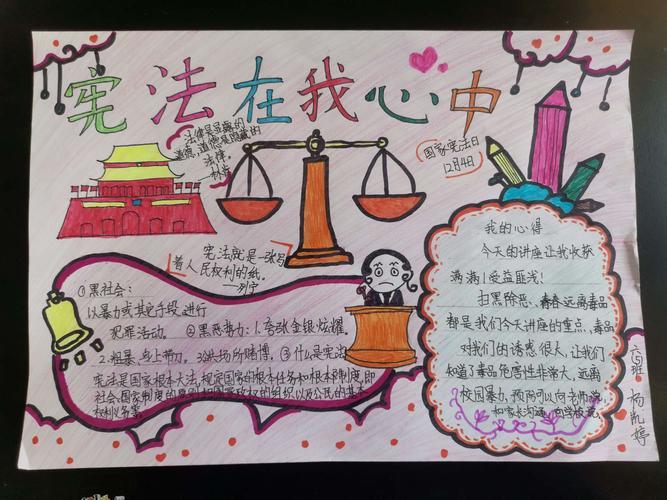 宪法在我心中
法律是显露的
道德,道德是隐藏的
法律。
—林肯
国家宪法日
12月4日
宪法就是一张写
着人民权利的纸。
—列宁
①黑社会:
以暴力或其它手段,进行
犯罪活动。 ②黑恶势力:1.夸张金银,炫耀,
2.粗暴,身上带刀。3.娱场所赌博。③什么是宪法
宪法是国家根本大法,规定国家的根本任务和根本制度,即
社会、国家制度的原则和国家政权的组织以及公民的基本
权利义务等。
我的心得
今天的讲座让我收获
满满!受益匪浅!
扫黑除恶、青春远离毒品
都是我们今天讲座的重点,毒品
对我们的诱惑很大,让我们
知道了毒品危害性非常大,远离
校园暴力,预防可以向老师
和家长沟通,向学校
六(5)班 杨凯婷